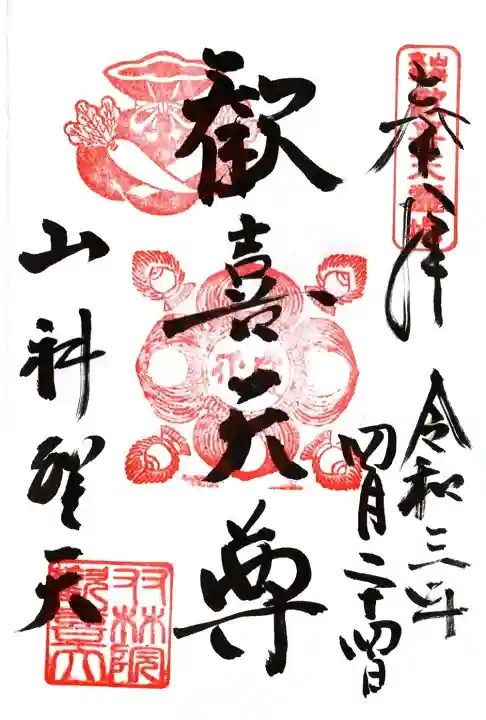 奉拝
令和三年
四月二十四日
歓喜天尊
山科聖天
双林院
歓喜天